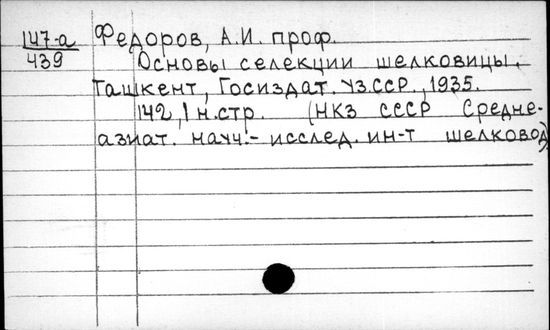 147-а Федоров, А.И. проф.
439 Основы селекции шелковицы.
Ташкент, Госиздат. УзССР, 1935.
142, 1 н.стр. (НКЗ СССР Средне-
азиат. научн.- исслед. ин-т шелковод)